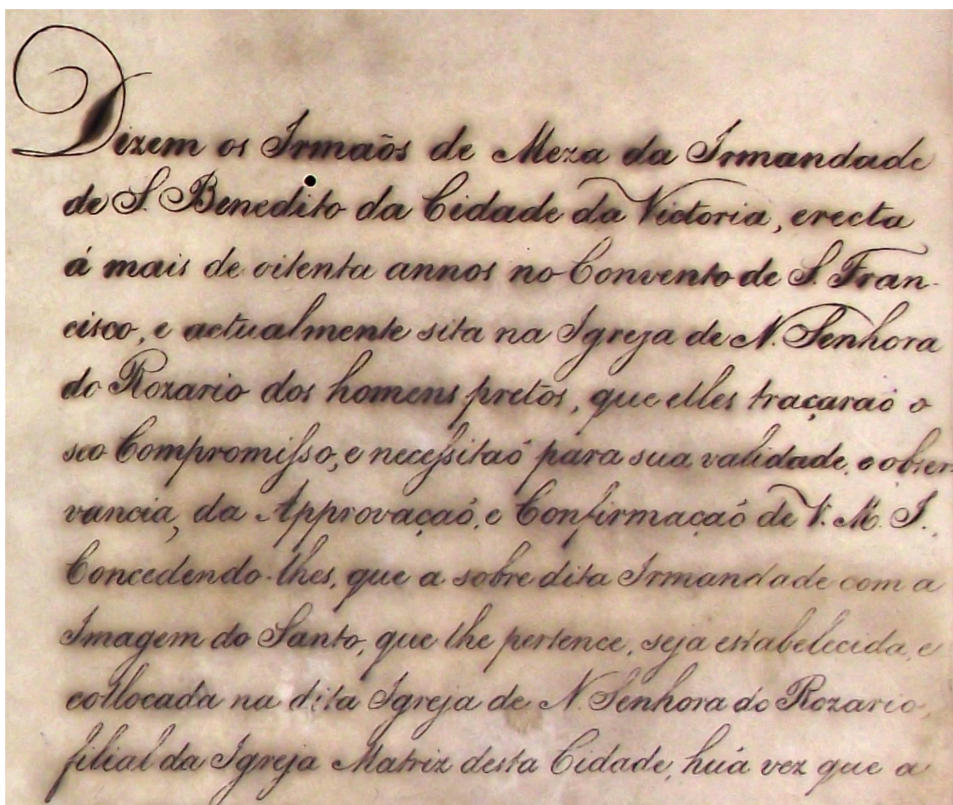 Dizem os Irmaõs de Meza da Irmandade
de S. Benedito da Cidade da Victoria, erecta
á mais de oitenta annos no Convento de S. Fran-
cisco, e actualmente sita na Igreja de N. Senhora
do Rozario dos homens pretos, que elles traçaraõ o
seo Compromisso, e necessitaõ para sua validade, e obser
vancia, da Approvaçaõ, e Confirmaçaõ de V. M. I.
Concedendo-lhes, que a sobre dita Irmandade com a
Imagem do Santo, que lhe pertence, seja estabelecida, e
collocada na dita Igreja de N. Senhora do Rozario,
filial da Igreja Matriz desta Cidade, húa vez que a